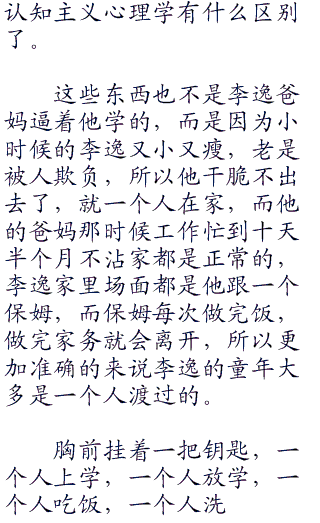 认知主义心理学有什么区别
了。
这些东西也不是李逸爸
妈逼着他学的，而是因为小
时候的李逸又小又瘦，老是
被人欺负，所以他干脆不出
去了，就一个人在家，而他
的爸妈那时候工作忙到十天
半个月不沾家都是正常的，
李逸家里场面都是他跟一个
保姆，而保姆每次做完饭，
做完家务就会离开，所以更
加准确的来说李逸的童年大
多是一个人渡过的。
胸前挂着一把钥匙，一
个人上学，一个人放学，一
个人吃饭，一个人洗